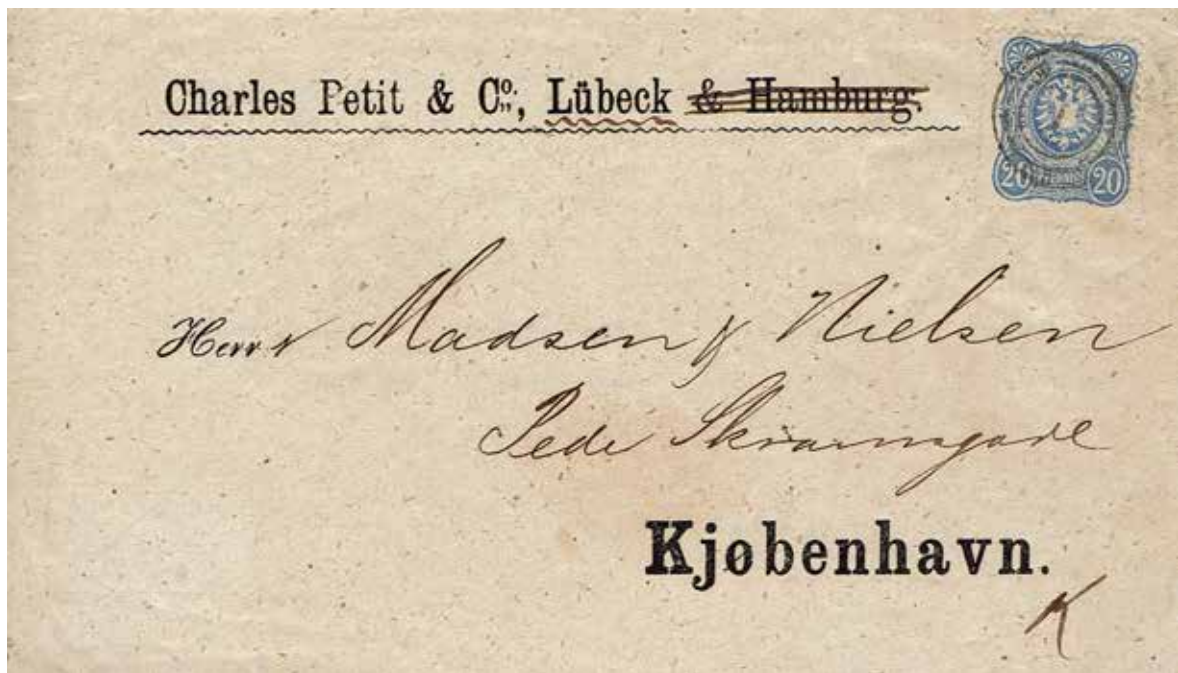 Charles Petit & Co., Lübeck & Hamburg.
20 PFENNIG 20
Herrn Madsen & Nielsen
Peder Skramsgade
Kjøbenhavn.
K